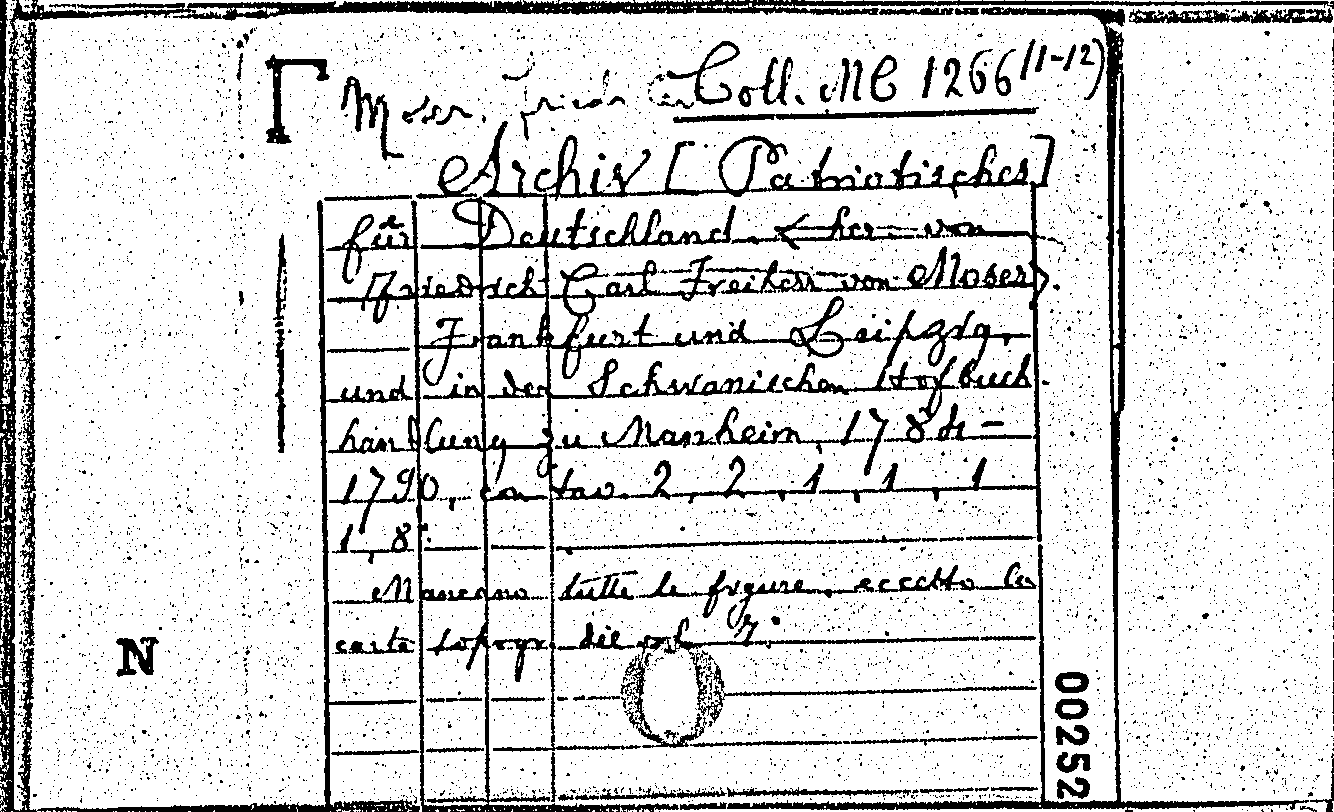 Moser, Friedr. Car Coll. MC 1266 (1-12)
Archiv [Patriotisches]
für Deutschland. <her. von
Friedrich Carl Freiherr von Moser>.
Frankfurt und Leipzig,
und in der Schwanischen Hofbuch
handlung zu Manheim, 1784-
1790, con tav. 2, 2, 1, 1, 1
1, 8°.
Mancano tutte le figure, eccetto la
carta topogr. del vol 7°
N
00252